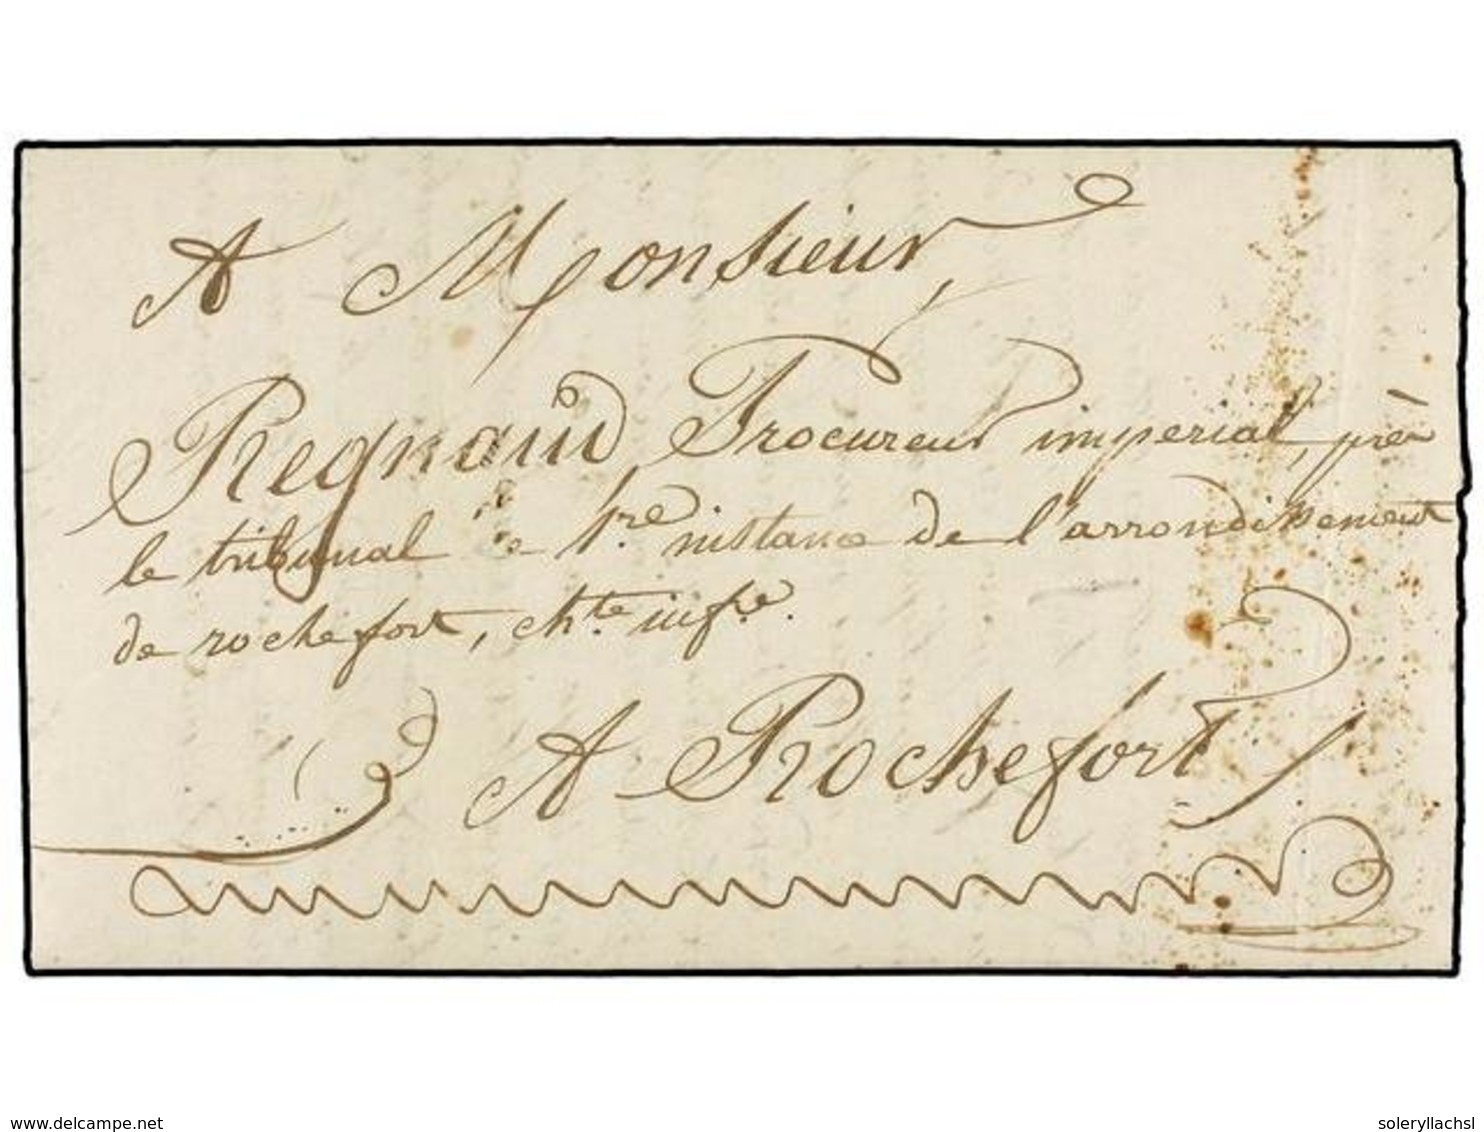 A Monsieur,
Regnaud, Procureur imperial, près
le tribunal de 1.re instance de l'arrondissement
de rochefort, ch.te inf.re.
A Rochefort
delcampe.net
soleryllachsl